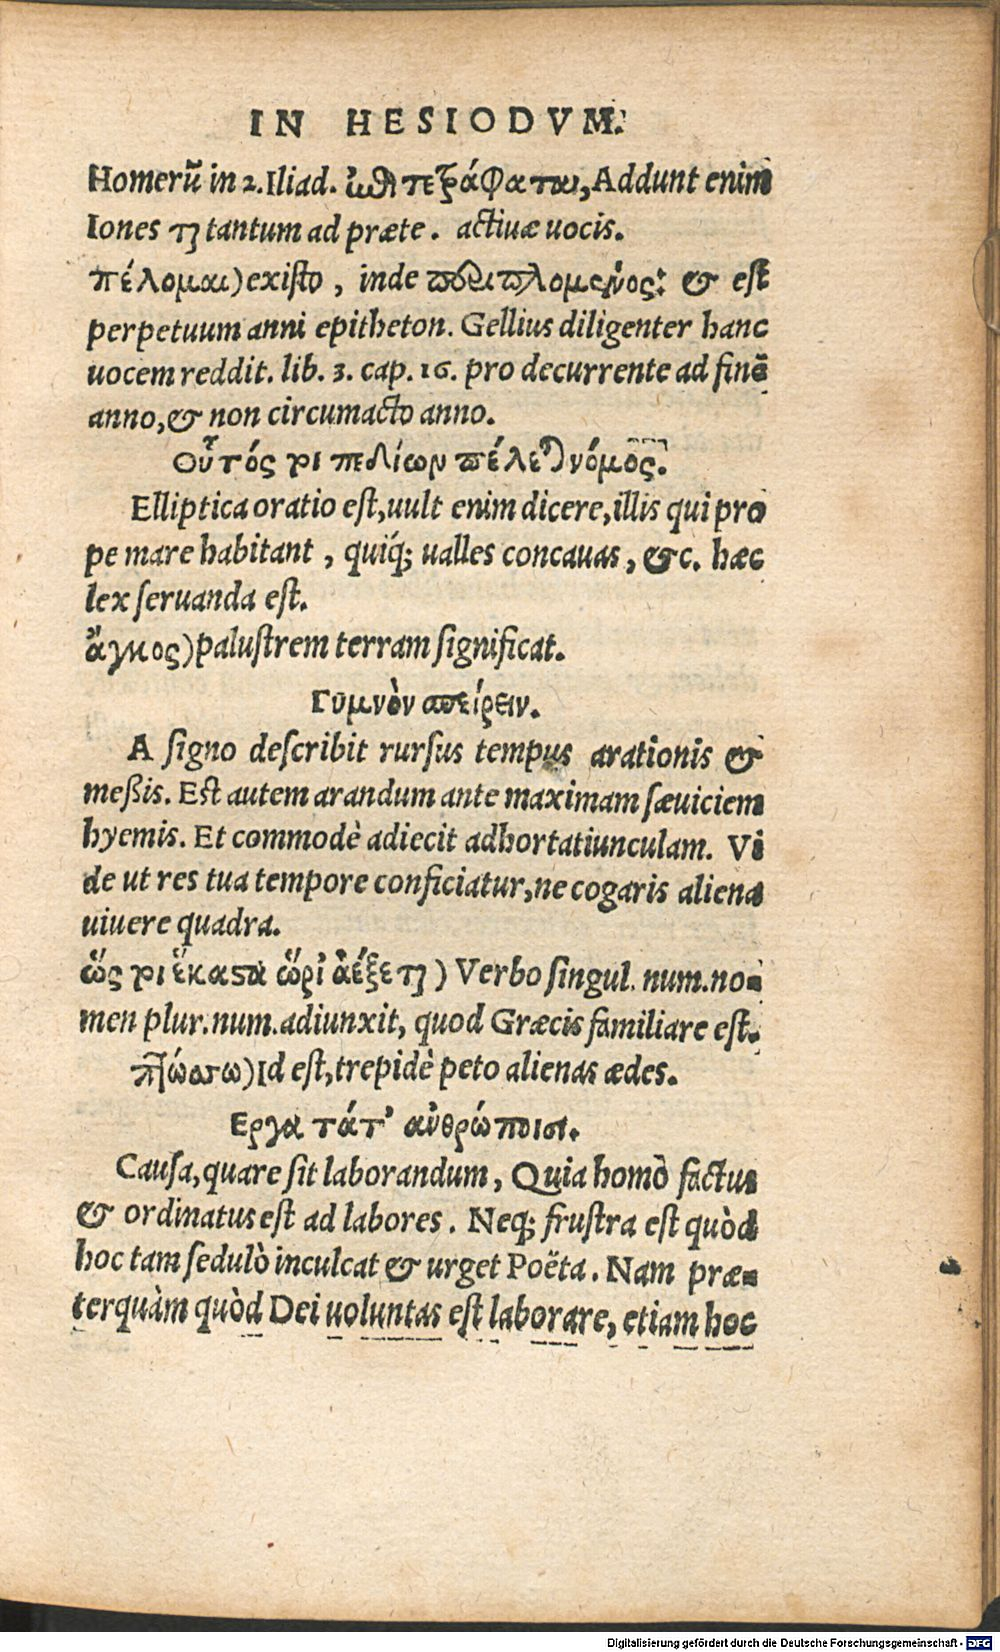 IN HESIODVM.
Homerū in 2. Iliad. ἐπιτετράφαται, Addunt enim
Iones τῃ tantum ad præte. actiuæ uocis.
πέλομαι) existo, inde περιπλομένος: & est
perpetuum anni epitheton. Gellius diligenter hanc
uocem reddit. lib. 3. cap. 16. pro decurrente ad finē
anno, & non circumacto anno.
Οὗτός τοι πεδίων πέλεται νόμος.
Elliptica oratio est, uult enim dicere, illis qui pro
pe mare habitant, quiq́; ualles concauas, &c. hæc
lex seruanda est.
ἄγκος) palustrem terram significat.
Γυμνὸν σπείρειν.
A signo describit rursus tempus arationis &
meßis. Est autem arandum ante maximam sæuiciem
hyemis. Et commodè adiecit adhortatiunculam. Vi
de ut res tua tempore conficiatur, ne cogaris aliena
uiuere quadra.
ὥς τοι ἕκαστα ὥρι' ἀέξεται) Verbo singul. num. no-
men plur. num. adiunxit, quod Græcis familiare est.
πτώσσω) Id est, trepidè peto alienas ædes.
Εργα τάτ' ἀνθρώποισι.
Causa, quare sit laborandum, Quia homo factus
& ordinatus est ad labores. Neq; frustra est quòd
hoc tam sedulò inculcat & urget Poëta. Nam præ-
terquàm quòd Dei uoluntas est laborare, etiam hoc
Digitalisierung gefördert durch die Deutsche Forschungsgemeinschaft - DFG